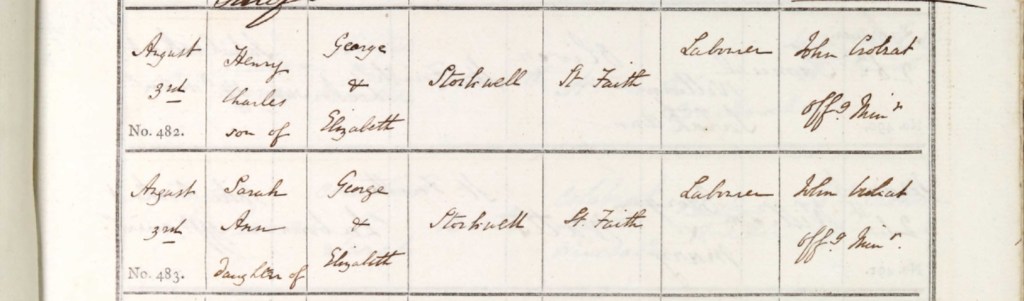 August
3rd
No. 482.
Henry
Charles
son of
George
&
Elizabeth
Stockwell
St. Faith
Labourer
John
Offg Minr
August
3rd
No. 483.
Sarah
Ann
daughter of
George
&
Elizabeth
Stockwell
St. Faith
Labourer
John
Offg Minr.